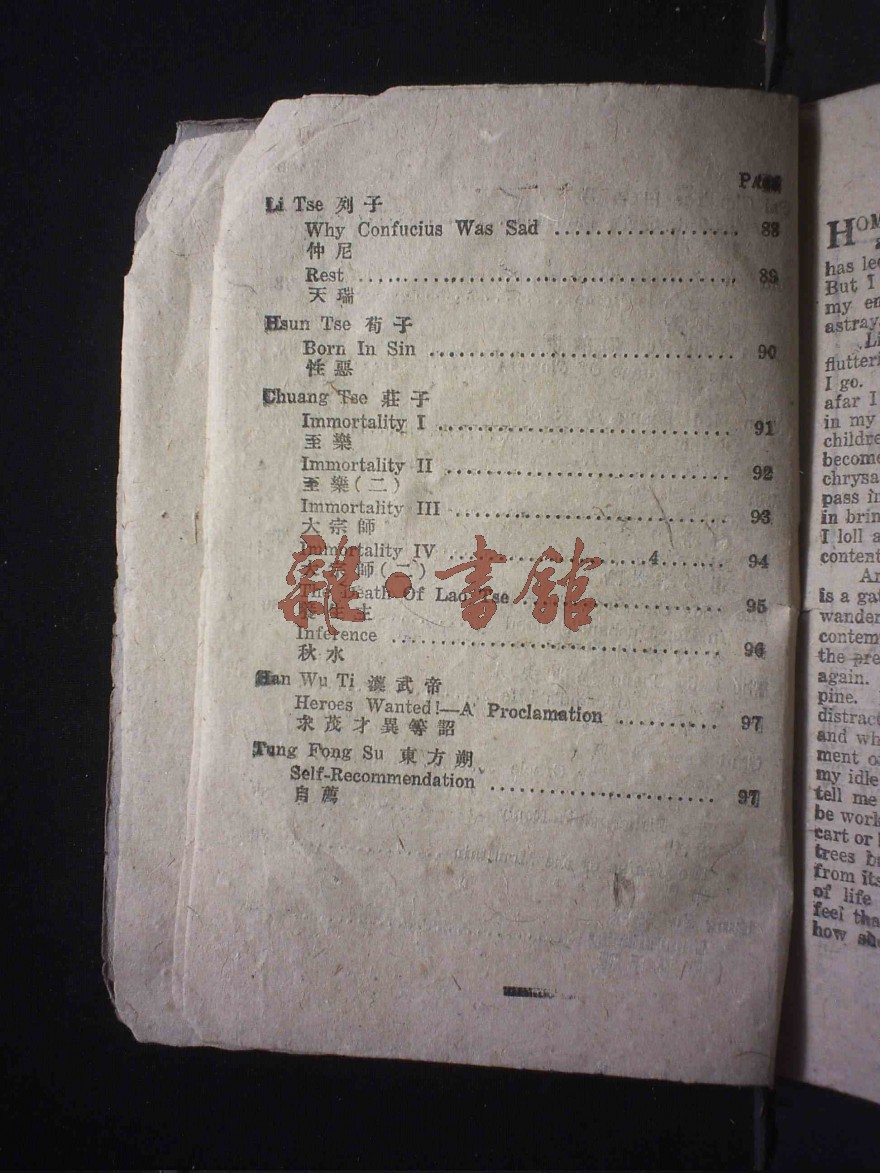 PAGE
Li Tse 列子
Why Confucius Was Sad .................. 88
仲尼
Rest .................................... 89
天瑞
Hsun Tse 荀子
Born In Sin ............................. 90
性惡
Chuang Tse 莊子
Immortality I ............................ 91
至樂
Immortality II ........................... 92
至樂(二)
Immortality III .......................... 93
大宗師
Immortality IV ....................4...... 94
大宗師(二)
The Death Of Lao Tse .................... 95
養生主
Inference ................................ 96
秋水
Han Wu Ti 漢武帝
Heroes Wanted!—A Proclamation .......... 97
求茂才異等詔
Tung Fong Su 東方朔
Self-Recommendation ...................... 97
自薦
雜·書館
HOM
has led
But I
my en
astray
Li
flutteri
I go.
afar I
in my
childre
become
chrysa
pass in
in brin
I loll a
content
An
is a gat
wander
contem
the pre
again.
pine.
distract
and wh
ment o
my idle
tell me
be work
cart or
trees b
from its
of life
feel tha
how sh